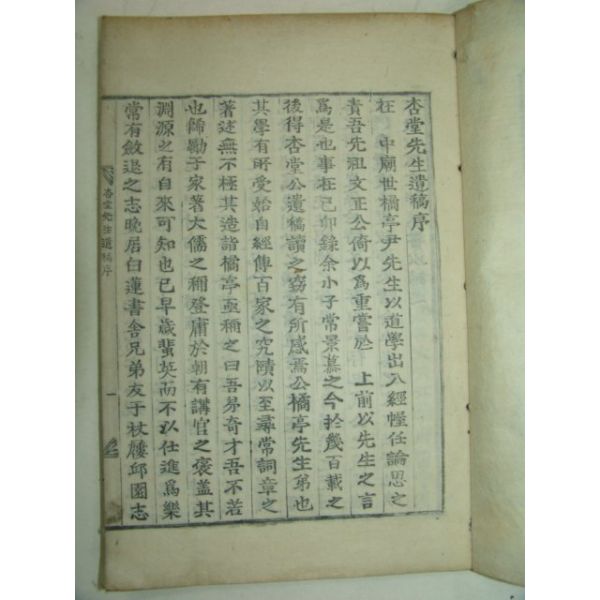 杏堂先生遺稿序
在 中廟世橘亭尹先生以道學出入經幄任論思之
責吾先祖文正公倚以爲重嘗於 上前以先生之言
爲是也事在己卯錄余小子常景慕之今於幾百載之
後得杏堂公遺稿讀之竊有所感焉公橘亭先生弟也
其學有所受始自經傳百家之究賾以至尋常詞章之
著述無不極其造詣橘亭亟稱之曰吾弟奇才吾不若
也歸勖于家著大儒之稱登庸於朝有講官之褒盖其
淵源之有自來可知也已早歲蜚英而不以仕進爲樂
常有斂退之志晩居白蓮書舍兄弟友于杖屨邱園志
杏堂先生遺稿序
一